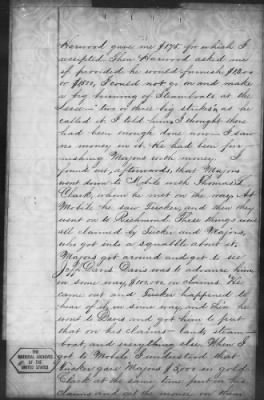 Harwood gave me $175. for which I
receipted. Then Harwood asked me
if provided he would furnish $1200
or $1500, I could not go on and make
a big burning of Steamboats at the
levee — two or three big strikes, as he
called it. I told him I thought there
had been enough done now — I saw
no money in it. He had been fur-
nishing Majors with money. I
found out, afterwards, that Majors
went down to Mobile with Thomas L.
Clark, whom he met on the way. At
Mobile he saw Tucker, and then they
went on to Richmond. These things were
all claimed by Tucker and Majors,
who got into a squabble about it.
Majors got around and got to see
Jeff Davis. Davis was to advance him
in some way, $100,000 on claims. He
came out and Tucker happened to
hear of it in some way and then he
went to Davis and got him to put
that on his claims — lands, steam-
boat, and everything else. When I
got to Mobile I understood that
Tucker gave Majors $5,000 in gold.
Clark at the same time put in his
claims and got the money on them
THE
NATIONAL ARCHIVES
OF THE
UNITED STATES